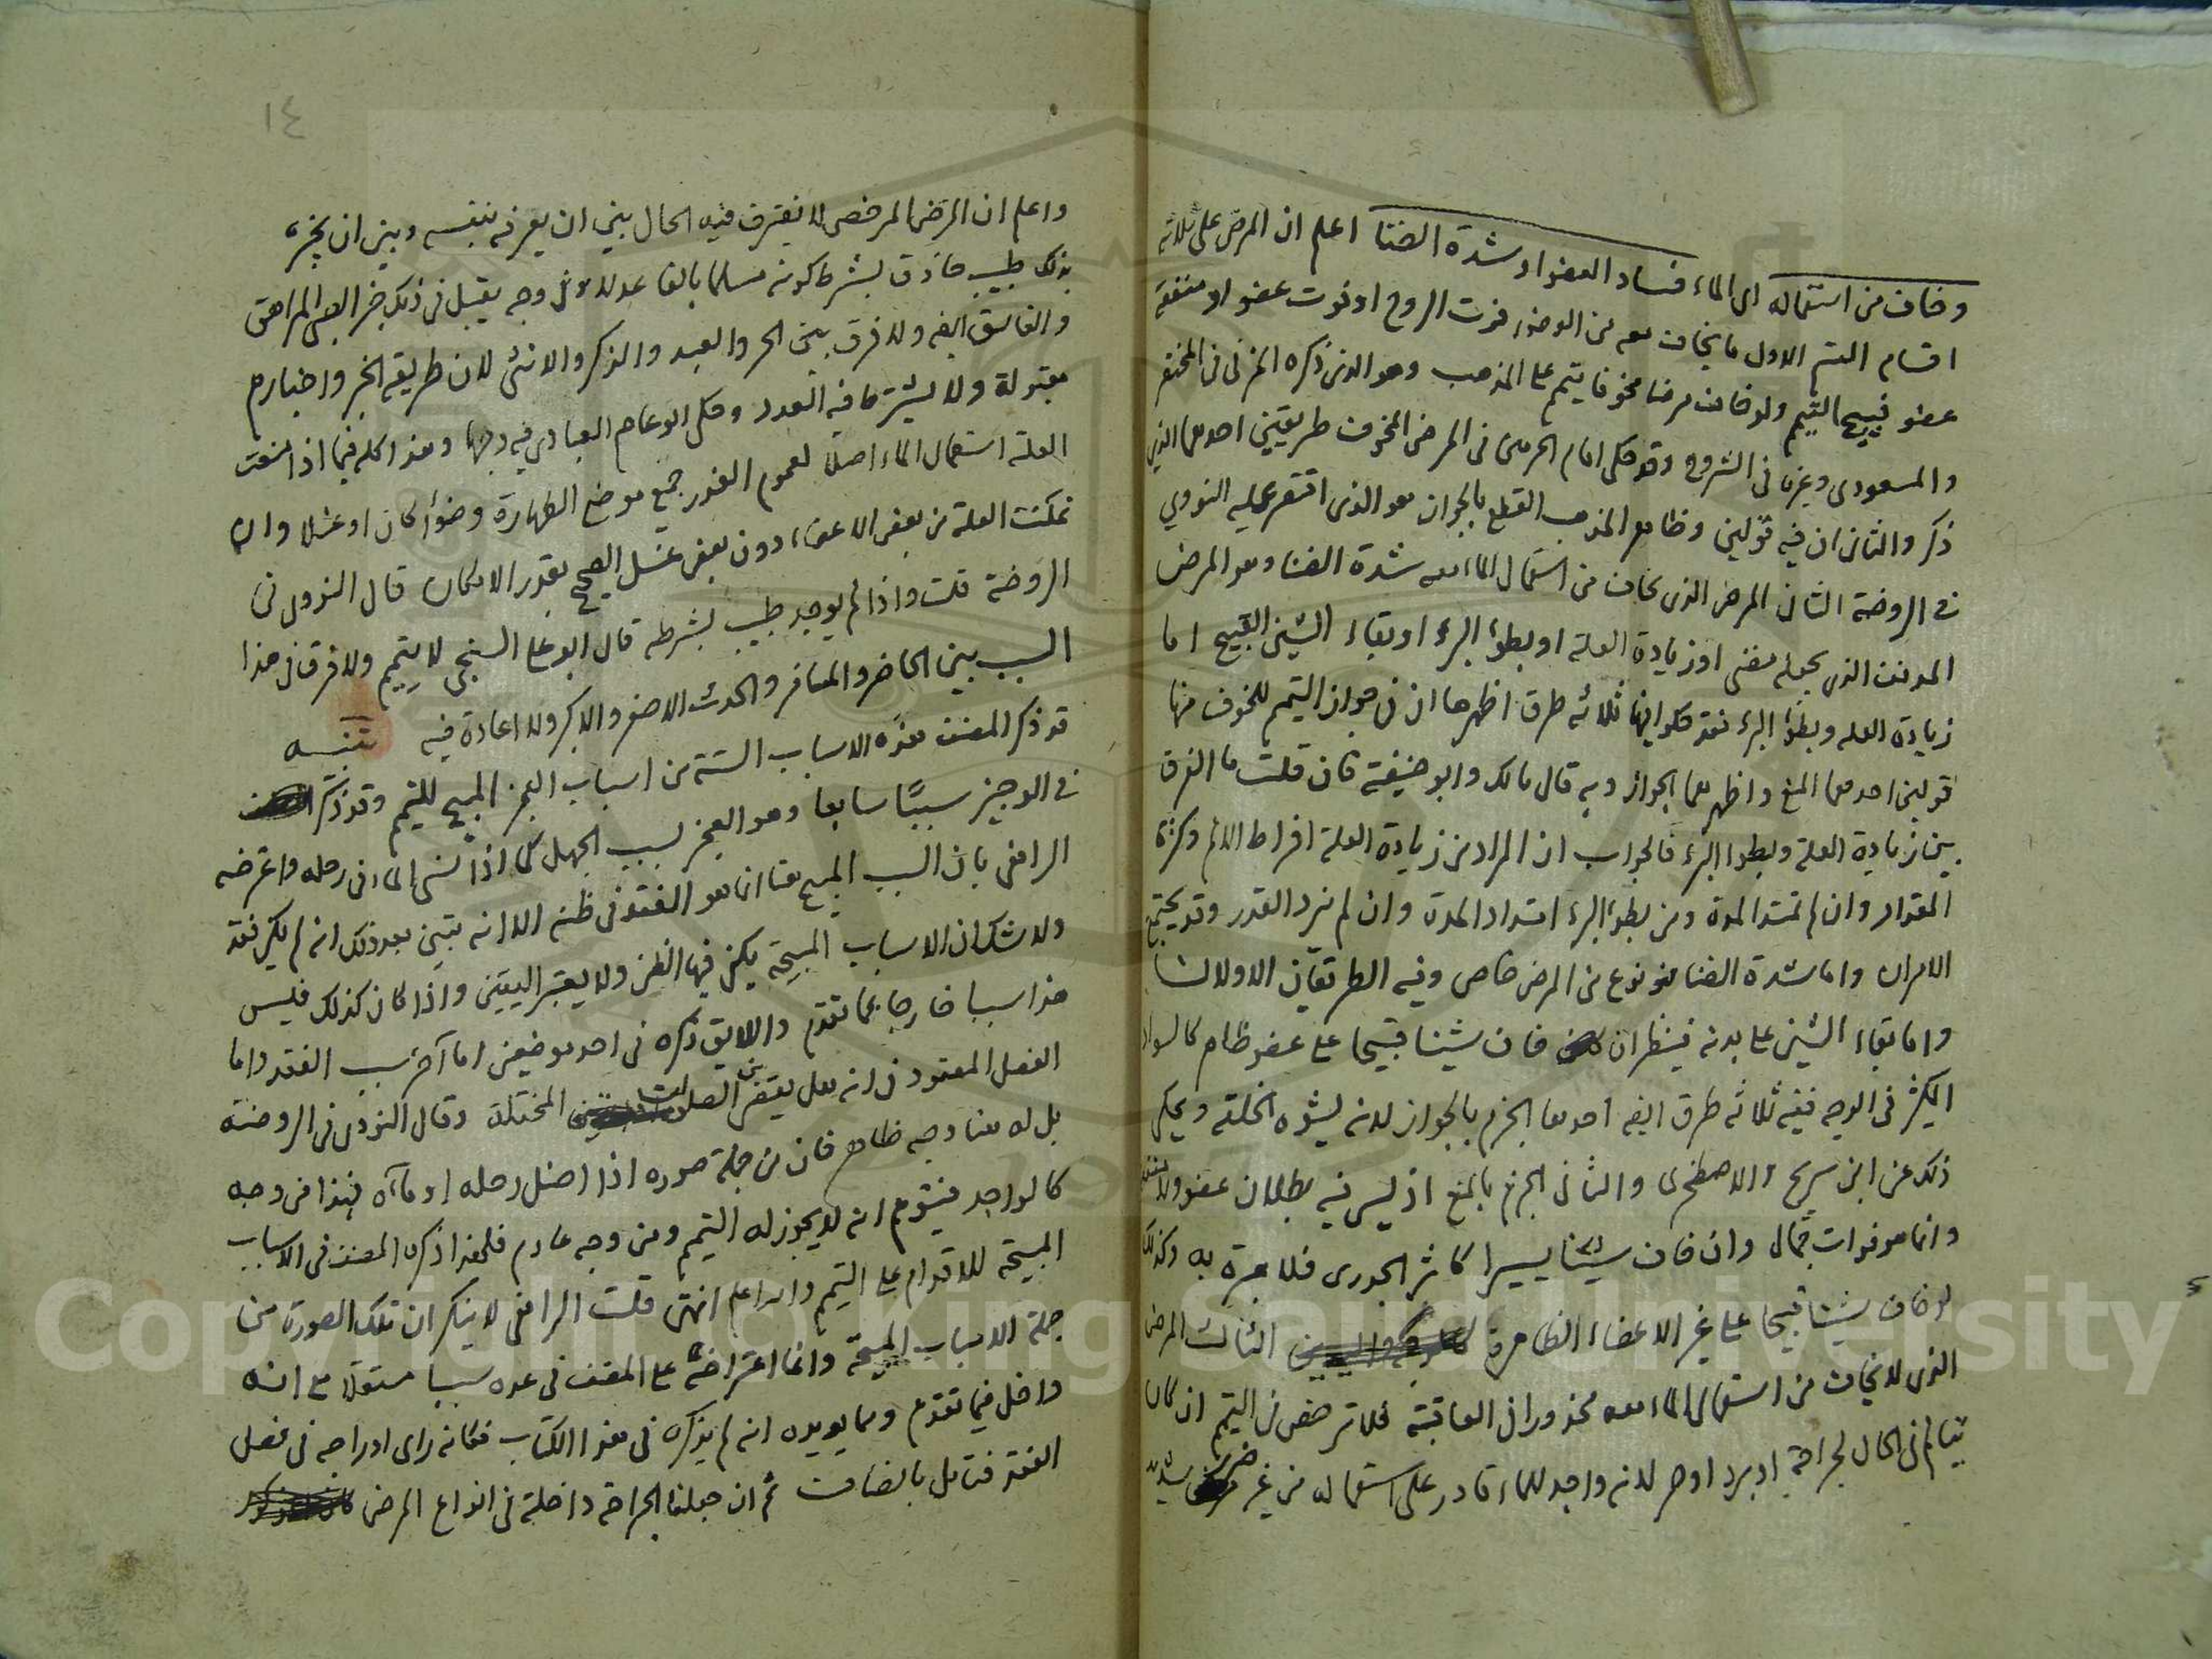 وخاف من استعماله اى الماء فساد العضو او شدة الضنا اعلم ان المرض على ثلاثة
اقسام القسم الاول ما يخاف معه من الوضوء فوت الروح او فوت عضو او منفعة
عضو فيبيح التيمم ولو خاف مرضا مخوفا يتيمم على المذهب وهو الذى ذكره المزنى فى المختصر
والمسعودى وغيره فى الشروح وقد حكى امام الحرمين فى المرض المخوف طريقين احدهما الذى
ذكر والثانى ان فيه قولين وظاهر المذهب القطع بالجواز هو الذى اقتصر عليه النووى
فى الروضة الثانى المرض الذى يخاف من استعمال الماء معه شدة الضنا وهو المرض
المدنف الذى يجعله مضنى او زيادة العلة او بطؤ البرء او بقاء الشين القبيح اما
زيادة العلة وبطؤ البرء فقد حكوا فيها ثلاثة طرق اظهرها ان فى جواز التيمم للخوف منها
قولين احدهما المنع واظهرهما الجواز وبه قال مالك وابو حنيفة فان قلت ما الفرق
بين زيادة العلة وبطؤ البرء فالجواب ان المراد من زيادة العلة افراط الالم وكثرة
المقدار وان لم تمتد المدة ومن بطؤ البرء امتداد المدة وان لم يزد القدر وقد يجتمع
الامران واما شدة الضنا فهو نوع من المرض خاص وفيه الطريقان الاولان
واما بقاء الشين على بدنه فينظر ان خاف شينا قبيحا على عضو ظاهر كالسواد
الكثير فى الوجه ففيه ثلاثة طرق ايضه احدها الجزم بالجواز لانه يشوه الخلقة ويحكى
ذلك عن ابن سريج والاصطخرى والثانى الجزم بالمنع اذ ليس فيه بطلان عضو ولا منفعة
وانما هو فوات جمال وان خاف شينا يسيرا كاثر الجدرى فلا عبرة به وكذلك
لو خاف شينا قبيحا على غير الاعضاء الظاهرة الثالث المرض
الذى لا يخاف من استعمال الماء معه محذورا فى العاقبة فلا ترخص فى التيمم ان كان
يتالم فى الحال لجراحة او برد او حر لانه واجد للماء قادر على استعماله من غير ضرر شديد
١٤
واعلم ان المرض المرخص لا يفترق فيه الحال بين ان يعرفه بنفسه وبين ان يخبره
بذلك طبيب حاذق بشرط كونه مسلما بالغا عدلا وفى وجه يقبل فى ذلك خبر الصبى المراهق
والفاسق ايضه ولا فرق بين الحر والعبد والذكر والانثى لان طريقه الخبر واخبارهم
مقبولة ولا يشترط فيه العدد وحكى ابو عاصم العبادى فيه وجها وهذا كله فيما اذا منعت
العلة استعمال الماء اصلا لعموم العذر جميع موضع الطهارة وضوأ كان او غسلا وان
تمكنت العلة من بعض الاعضاء دون بعض غسل الصحيح بقدر الامكان قال النووى فى
الروضة قلت واذا لم يوجد طبيب بشرطه قال ابو على السنجى لا يتيمم ولا فرق فى هذا
السبب بين الحاضر والمسافر والحدث الاصغر والاكبر ولا اعادة فيه تنبيه
قد ذكر المصنف هذه الاسباب الستة من اسباب العجز المبيح للتيمم وقد ذكر
فى الوجيز سببًا سابعا وهو العجز بسبب الجهل كما اذا نسى الماء فى رحله واعترضه
الرافعى بان السبب المبيح هنا انما هو الفقد فى ظنه الا انه تبين بعد ذلك انه لم يكن فقد
ولا شك ان الاسباب المبيحة يكفى فيها الظن ولا يعتبر اليقين واذا كان كذلك فليس
هذا سببا خارجا عما تقدم واللايق ذكره فى احد موضعين اما آخر سبب الفقد واما
الفصل المعقود فى انه هل يقضى الصلوات المختلة وقال النووى فى الروضة
بل له هنا وجه ظاهر فان من جملة صوره اذا اضل رحله او ماءه فهذا من وجه
كالواجد فيتوهم انه لا يجوز له التيمم ومن وجه عادم فلهذا ذكره المصنف فى الاسباب
المبيحة للاقدام على التيمم والله اعلم انتهى قلت الرافعى لا ينكر ان تلك الصورة من
جملة الاسباب المبيحة وانما اعتراضه على المصنف فى عده سببا مستقلا مع انه
داخل فيما تقدم ومما يويده انه لم يذكره فى هذا الكتاب فكانه راى ادراجه فى فصل
الفقد فتامل بانصاف ثم ان جعلنا الجراحة داخلة فى انواع المرض